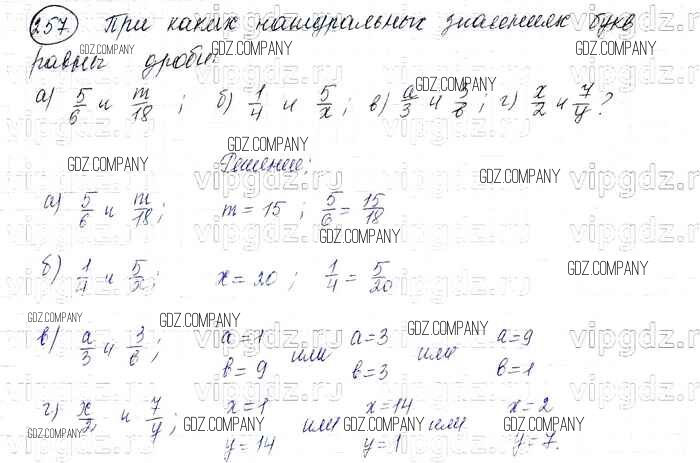 257. При каких натуральных значениях букв
равны дроби:
а) 5/6 и m/18 ; б) 1/4 и 5/x ; в) a/3 и 3/в ; г) x/2 и 7/y ?
Решение:
а) 5/6 и m/18 ; m = 15 ; 5/6 = 15/18
б) 1/4 и 5/x ; x = 20 ; 1/4 = 5/20
в) a/3 и 3/в ; a=1 в=9 или a=3 в=3 или a=9 в=1
г) x/2 и 7/y ; x=1 y=14 или x=14 y=1 или x=2 y=7.
GDZ.COMPANY
vipgdz.ru